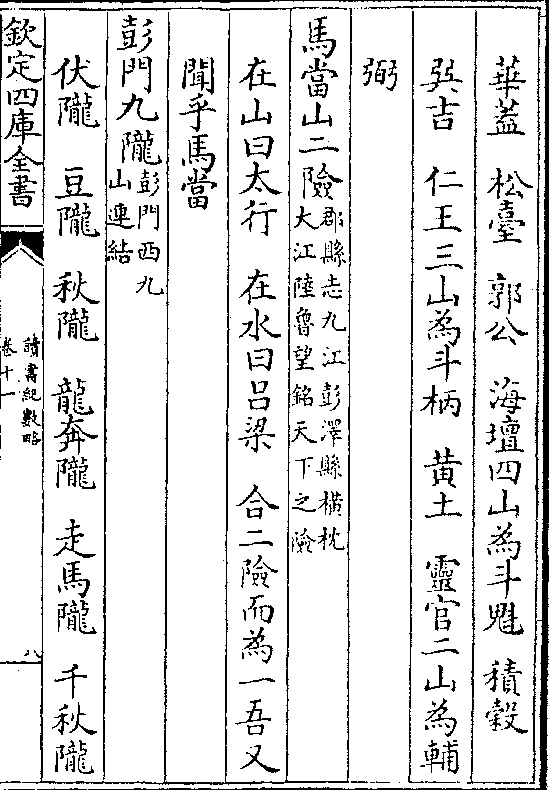 華蓋　松臺　郭公　海壇四山為斗魁　積穀
巽吉　仁王三山為斗柄　黄土　靈官二山為輔
弼
馬當山二險郡縣志九江彭澤縣横枕
大江陸魯望銘天下之險
在山曰太行　在水曰吕梁　合二險而為一吾又
聞乎馬當
彭門九隴彭門西九
山連結
伏隴　豆隴　秋隴　龍奔隴　走馬隴　千秋隴
欽定四庫全書
讀書紀數略
卷十一
八